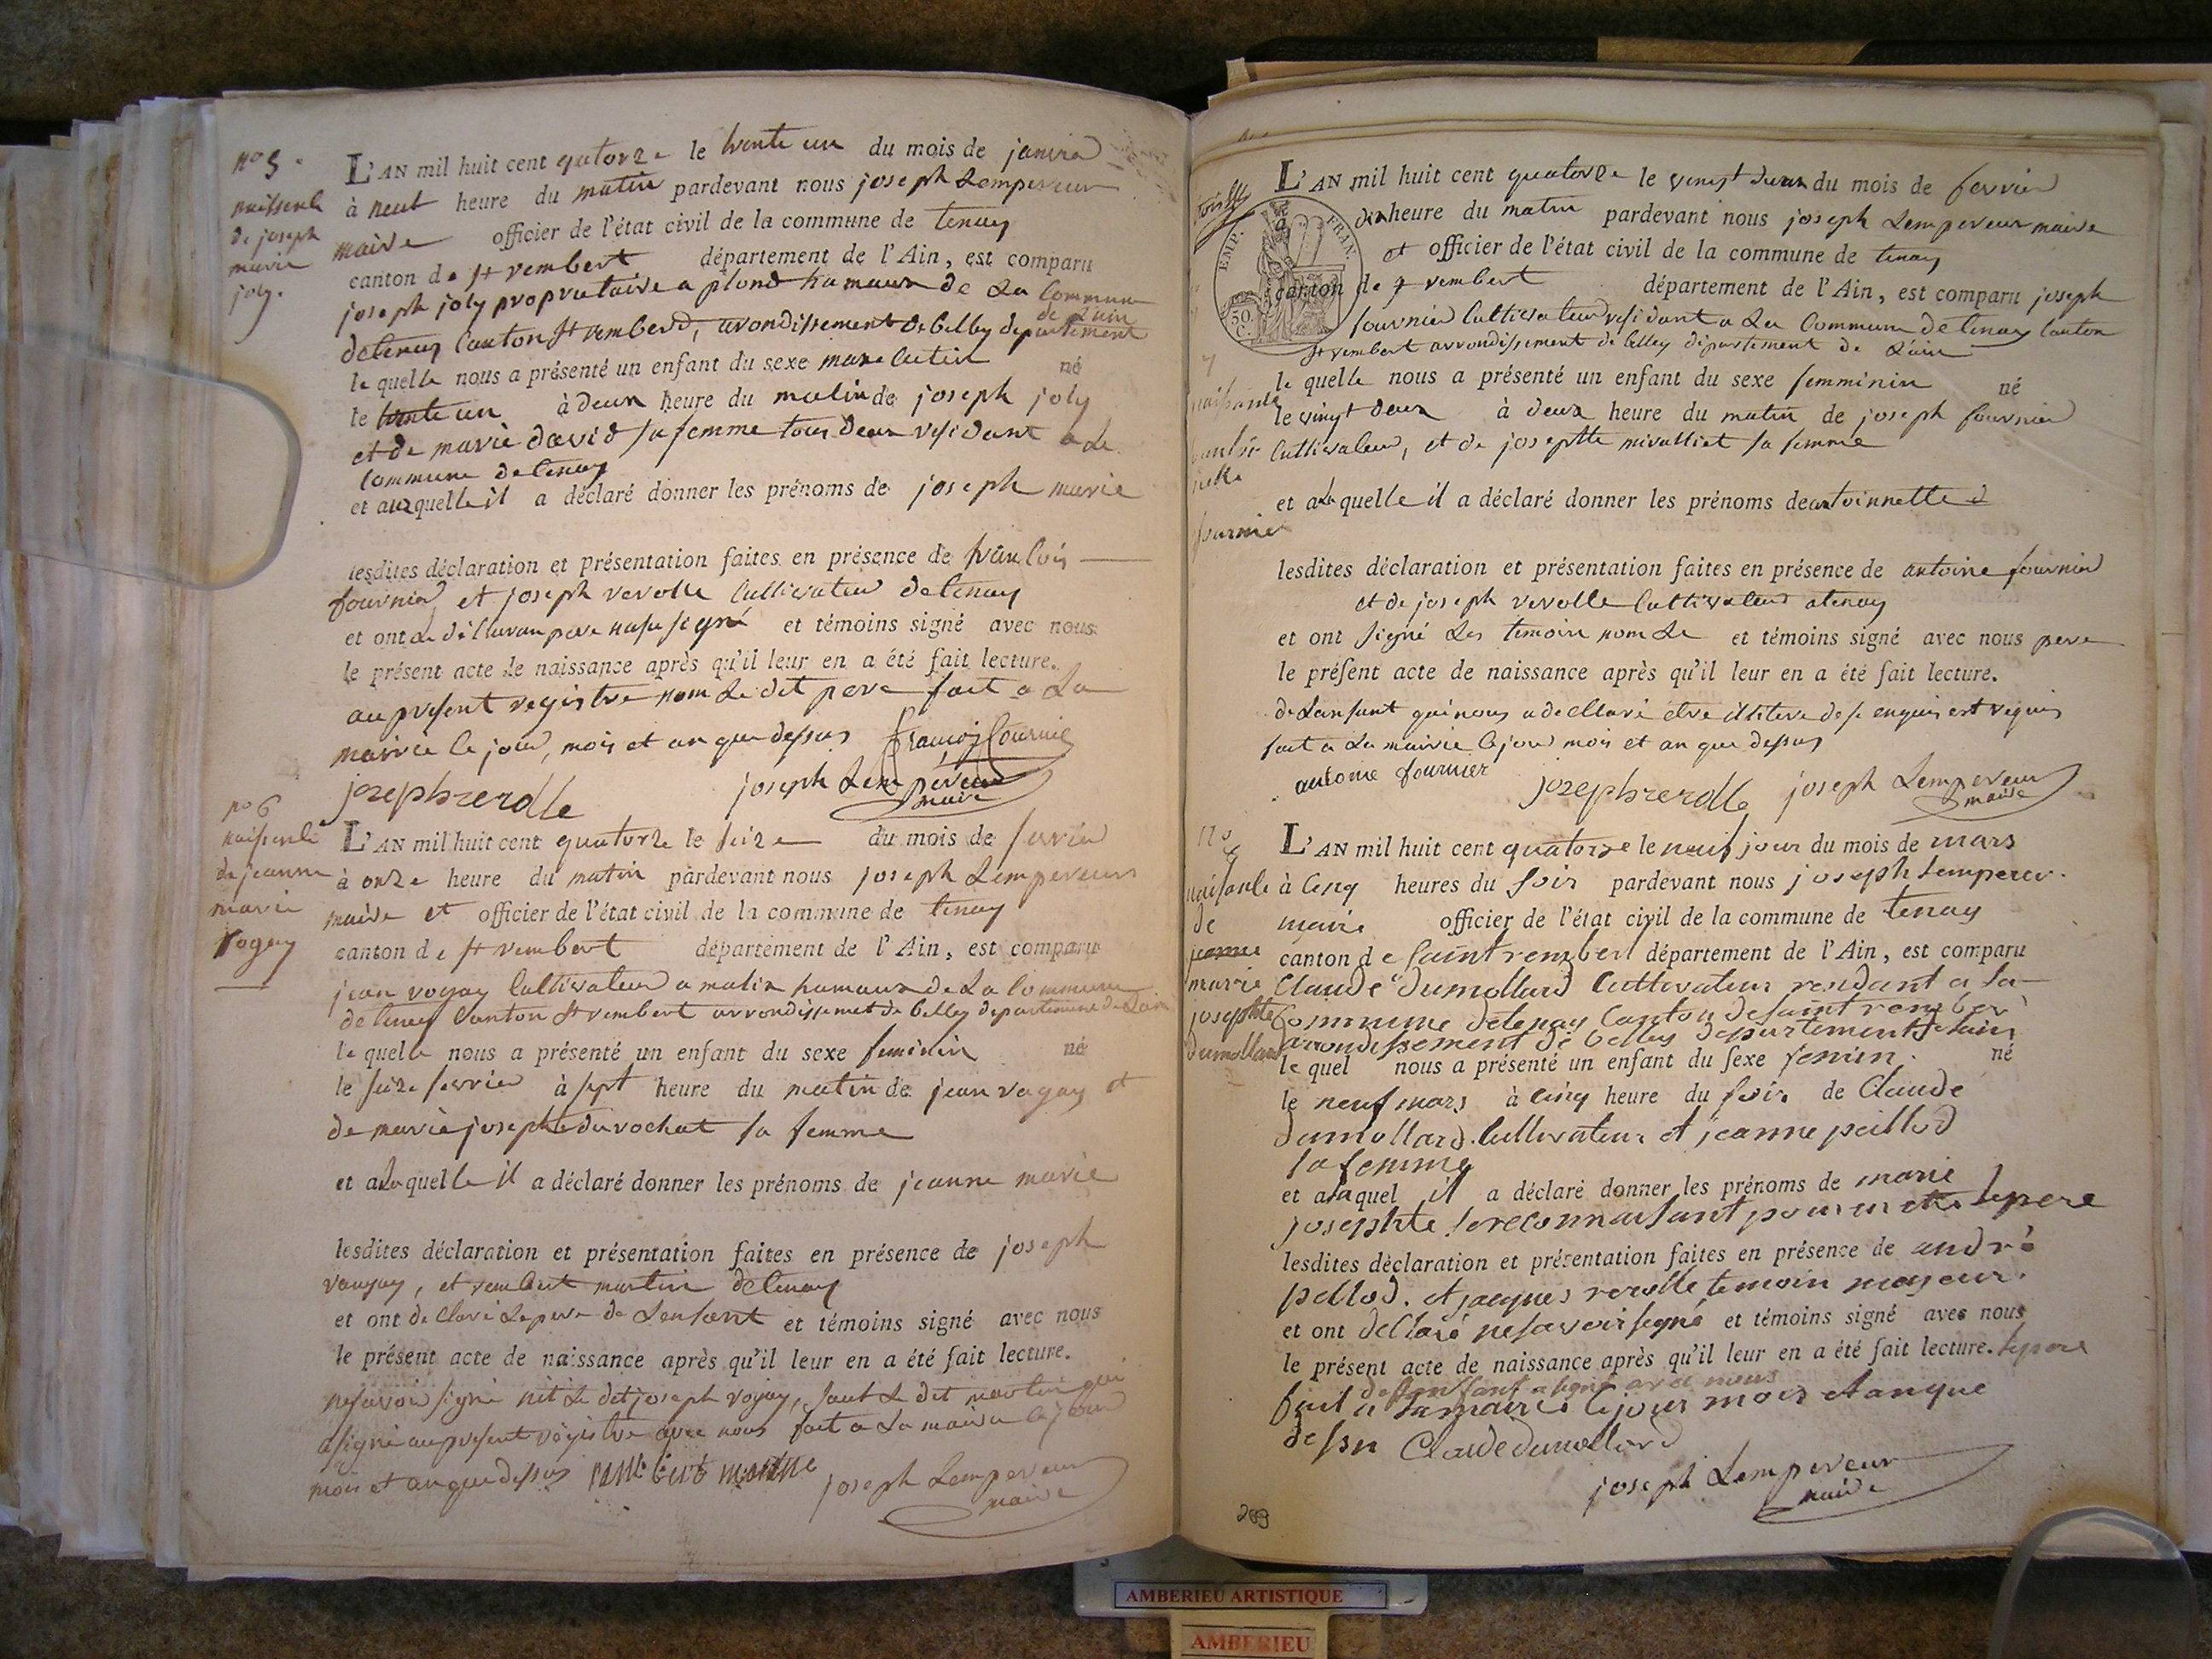 n° 5.
naissence
de joseph
marie
joly.
L'AN mil huit cent quatorze le trente un du mois de janvier
à neuf heure du matin pardevant nous joseph Lempereur
maire officier de l'état civil de la commune de tenay
canton de st rembert département de l'Ain, est comparu
joseph joly proprietaire a plond hamaux de La Commune
de tenay Canton st rembert, arondissement de belley departement
de Lain
le quelle nous a présenté un enfant du sexe masculin né
le trente un à deux heure du matin de joseph joly
et de marie david sa femme tous deux residant a La
Commune de tenay
et auquelle il a déclaré donner les prénoms de joseph marie
lesdites déclaration et présentation faites en présence de francois
fournier et joseph rerolle Cultivateur de tenay
et ont signé et témoins signé avec nous
le présent acte de naissance après qu'il leur en a été fait lecture.
au present registre nom Le dit pere fait a La
mairie le jour, mois et an que dessus françois fournier
joseph rerolle joseph Lempereur
maire
n° 6
naissence
de jeanne
marie
vogay
L'AN mil huit cent quatorze le seize du mois de fevrier
à onze heure du matin pardevant nous joseph Lempereur
maire et officier de l'état civil de la commune de tenay
canton de st rembert département de l'Ain, est comparu
jean vogay Cultivateur a malix hamaux de La Commune
de tenay Canton st rembert arrondissement de belley departement de Lain
le quelle nous a présenté un enfant du sexe feminin né
le seize fevrier à sept heure du matin de jean vogay et
de marie josephte durochat sa femme
et a La quelle il a déclaré donner les prénoms de jeanne marie
lesdites déclaration et présentation faites en présence de joseph
vougay, et rembert martin de tenay
et ont declaré Le pere de Lenfant et témoins signé avec nous
le présent acte de naissance après qu'il leur en a été fait lecture.
ne savoir signé nit Le dit joseph vogay, sauf Le dit martin qui
a signé au present régistre avec nous fait a La mairie le jour
mois et an que dessus rambert martin joseph Lempereur
maire
EMP. FRAN.
50.
C.
L'AN mil huit cent quatorze le vingt deux du mois de fevrier
à dix heure du matin pardevant nous joseph Lempereur maire
et officier de l'état civil de la commune de tenay
canton de st rembert département de l'Ain, est comparu joseph
fournier Cultivateur residant a La Commune de tenay Canton
st rembert arrondissement de belley département de Lain
7
naissance
fournier
le quelle nous a présenté un enfant du sexe femminin né
le vingt deux à deux heure du matin de joseph fournier
Cultivateur, et de josephte sa femme
et a La quelle il a déclaré donner les prénoms de antoinnette
lesdites déclaration et présentation faites en présence de antoine fournier
et de joseph rerolle Cultivateur a tenay
et ont signé Les temoin nom Le et témoins signé avec nous pere
le présent acte de naissance après qu'il leur en a été fait lecture.
de Lanfant qui nous a declaré etre illitere de ce enquis est requis
fait a La mairie le jour mois et an que dessus
antoine fournier joseph rerolle joseph Lempereur
maire
n°
naisance
de
jeanne
marie
josephte
dumollard
L'AN mil huit cent quatorze le neuf jour du mois de mars
à cinq heures du soir pardevant nous joseph Lempereur.
maire officier de l'état civil de la commune de tenay
canton de saint rembert département de l'Ain, est comparu
Claude dumollard Cultivateur residant a la
Commune de tenay Canton de saint rembert
arrondissement de belley departement de lain
le quel nous a présenté un enfant du sexe feminin. né
le neuf mars à cinq heure du soir de Claude
dumollard. Cultivateur et jeanne peillod
sa femme
et a la quel il a déclaré donner les prénoms de marie
josephte se reconnaissant pour en etre le pere
lesdites déclaration et présentation faites en présence de andré
pellod. et jacques rerolle temoin majeur.
et ont declaré ne savoir signé et témoins signé avec nous
le présent acte de naissance après qu'il leur en a été fait lecture. le pere
de Lenfant a signé avec nous
fait a La mairie le jour mois et an que
dessu Claude dumollard
joseph Lempereur
maire
AMBERIEU ARTISTIQUE
AMBERIEU